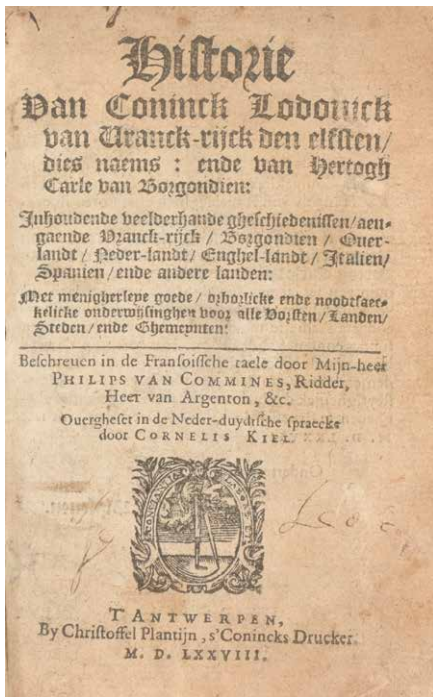 Historie
Van Coninck Lodowijck
van Vranck-rijck den elfsten/
dies naems : ende van Hertogh
Carle van Borgondien:
Inhoudende veelderhande gheschiedenissen/aen-
gaende Vranck-rijck / Borgondien / Ouer-
landt / Neder-landt / Enghel-landt / Italien/
Spanien / ende andere landen:
Met menigherleye goede / orborlicke ende nootsaec-
kelicke onderwijsinghen voor alle Vorsten / Landen/
Steden / ende Ghemeynten:
Beschreuen in de Fransoissche taele door Mijn-heer
PHILIPS VAN COMMINES, Ridder,
Heer van Argenton, &c.
Ouergheset in de Neder-duydtsche spraecke
door CORNELIS KIEL.
T'ANTWERPEN,
By Christoffel Plantijn, s'Conincks Drucker.
M. D. LXXVIII.